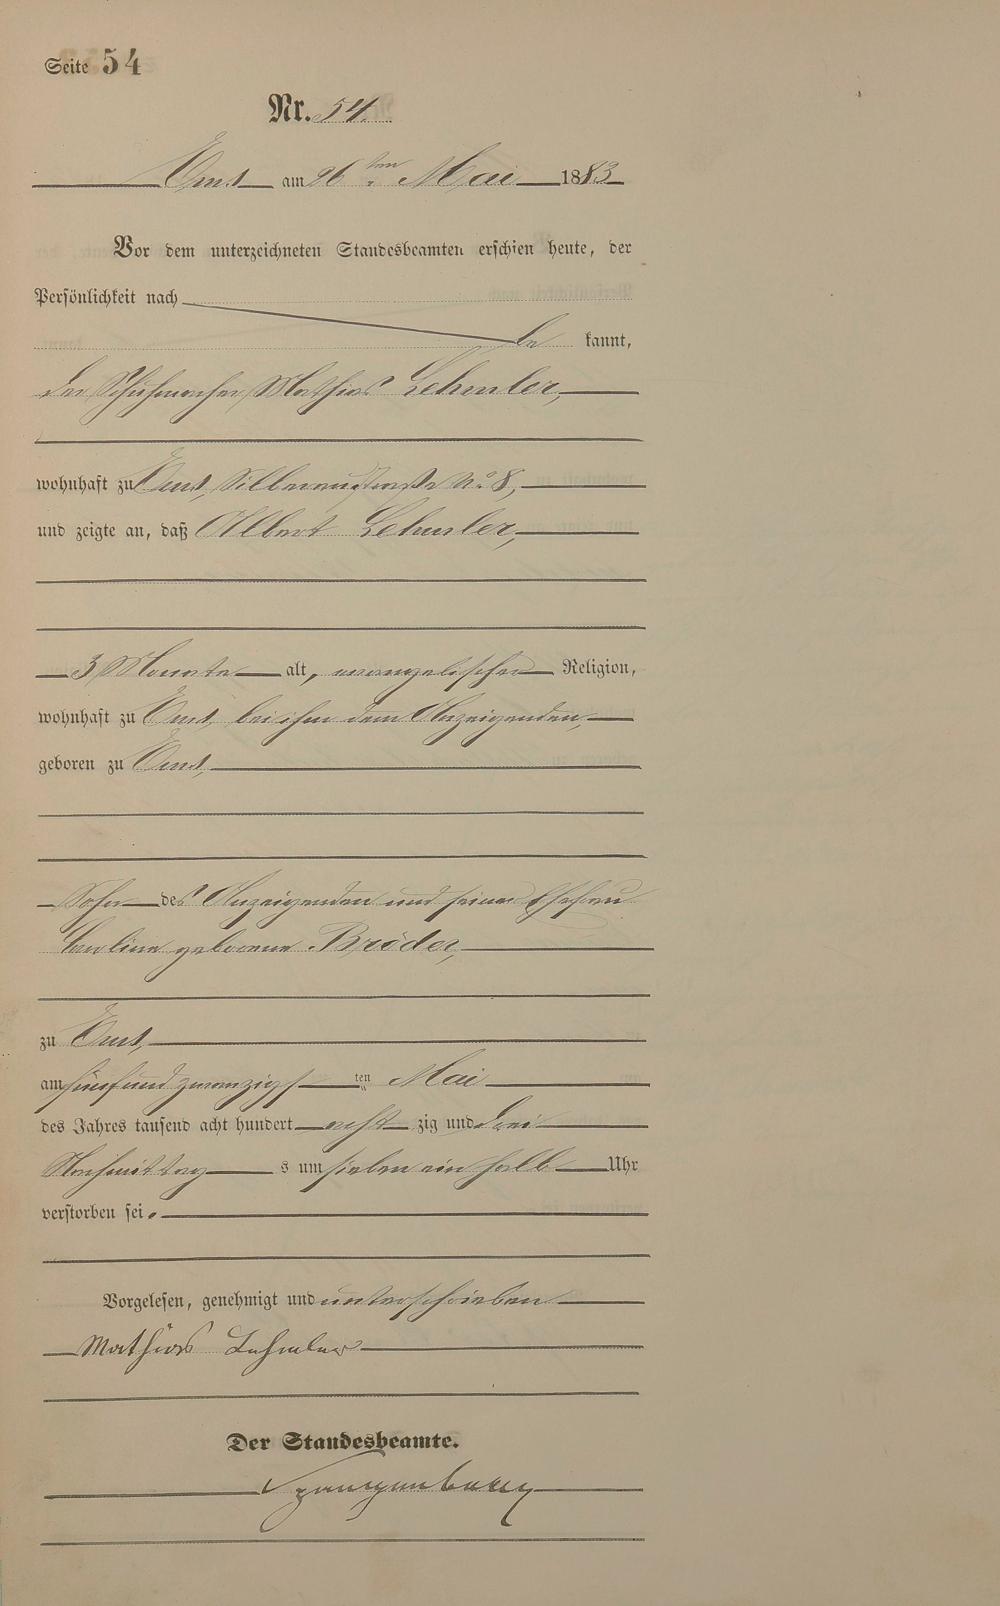 Seite 54
Nr. 54.
Ems am 26ten Mai 1883
Vor dem unterzeichneten Standesbeamten erschien heute, der
Persönlichkeit nach
be kannt,
der Schuhmacher Mathias Lehmler,
wohnhaft zu Ems, Silberaustraße No 8,
und zeigte an, daß Albert Lehmler,
3 Monate alt, evangelischer Religion,
wohnhaft zu Ems, bei ihm dem Anzeigenden,
geboren zu Ems,
Sohn des Anzeigenden und seiner Ehefrau
Caroline geborene Bröder,
zu Ems,
am fünfundzwanzigs ten Mai
des Jahres tausend acht hundert acht zig und drei
Nachmittag s um sieben ein halb Uhr
verstorben sei.
Vorgelesen, genehmigt und unterschrieben
Mathias Lehmler
Der Standesbeamte.
Spangenberg